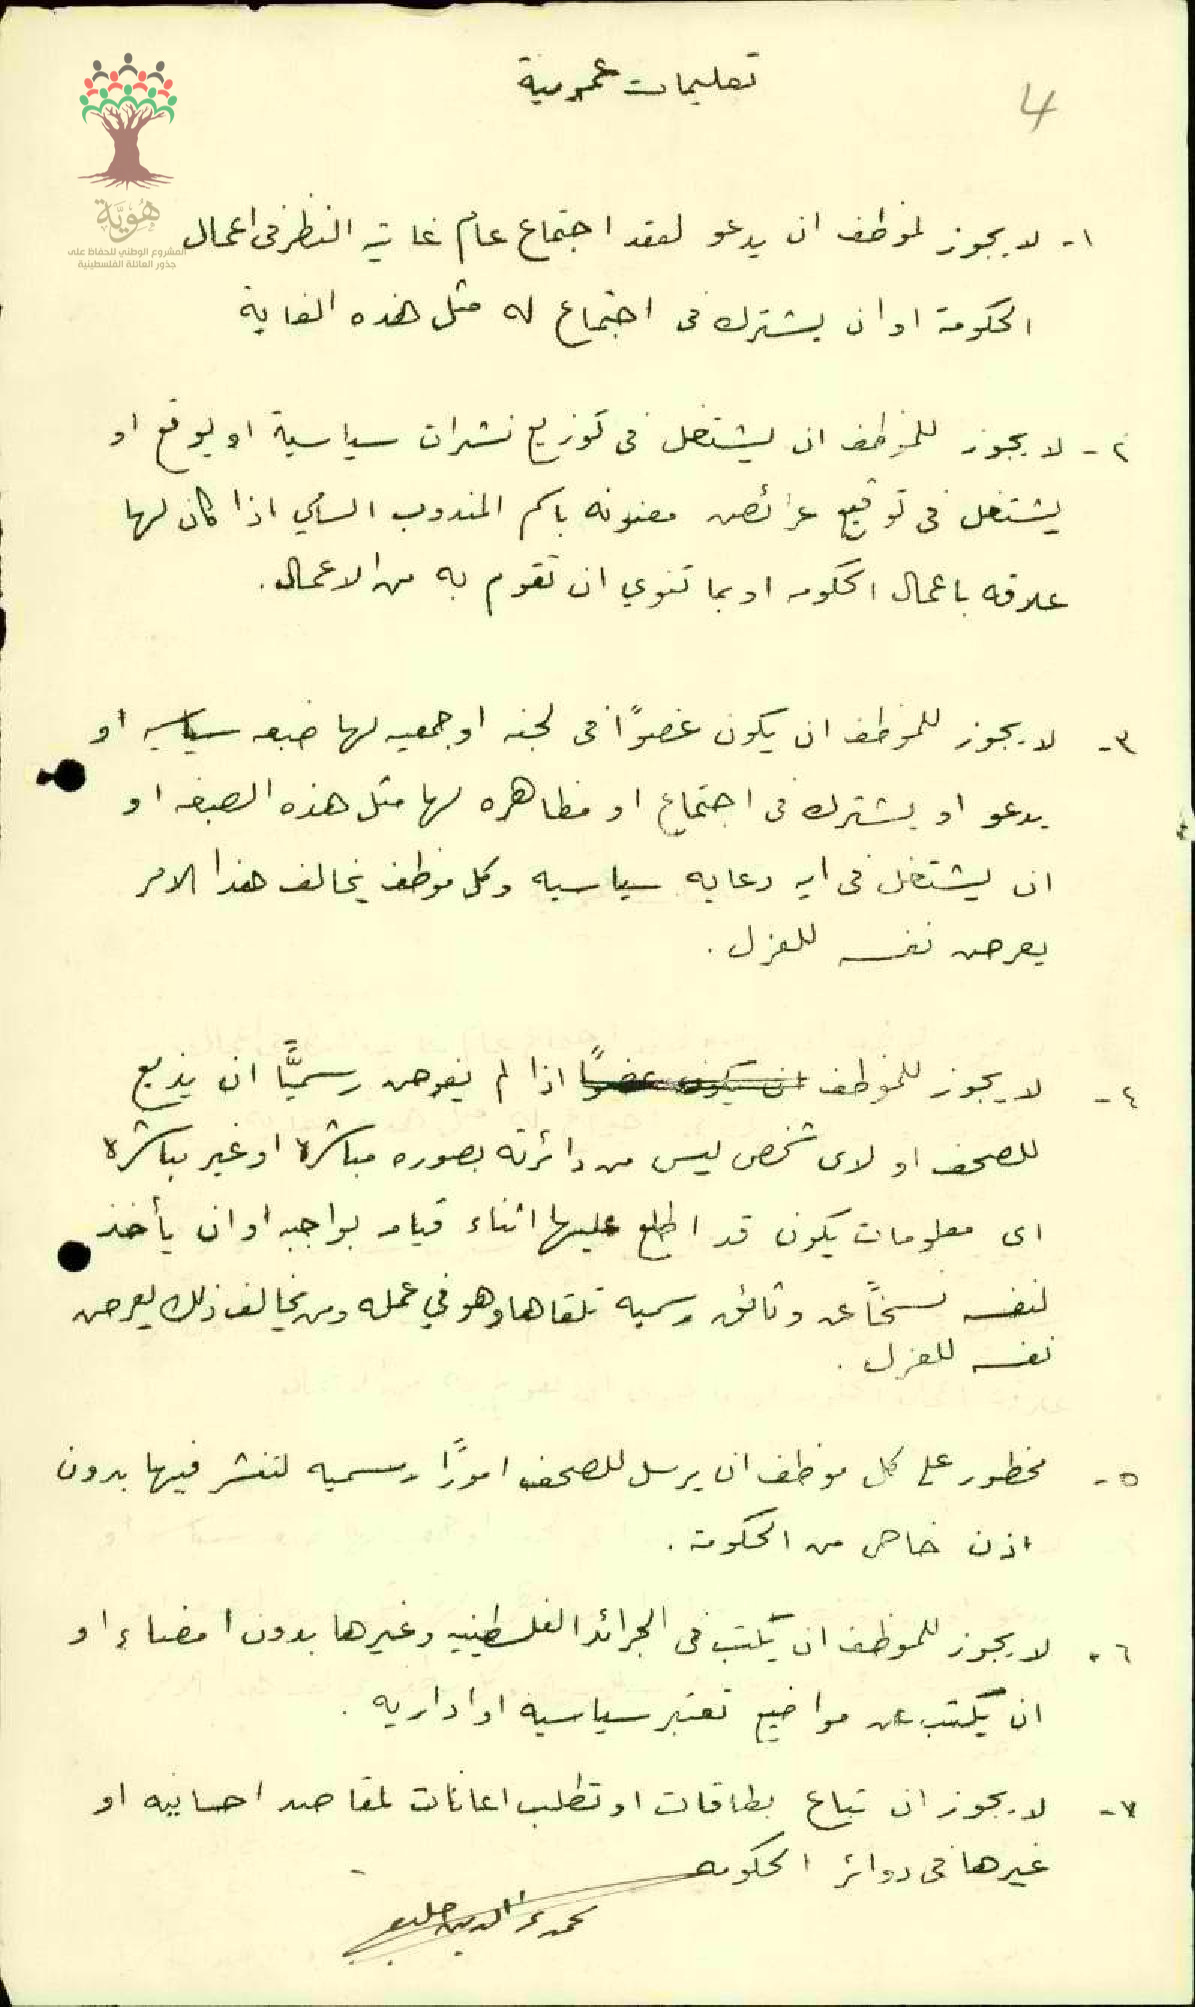 تعليمات عمومية
4
هُوِيَّة
المشروع الوطني للحفاظ على
جذور العائلة الفلسطينية
١- لا يجوز لموظف ان يدعو لعقد اجتماع عام غايته النظر في اعمال
الحكومة او ان يشترك في اجتماع له مثل هذه الغاية
٢- لا يجوز للموظف ان يشتغل في توزيع نشرات سياسية او يوقع او
يشتغل في توقيع عرائض معنونه باسم المندوب السامي اذا كان لها
علاقه باعمال الحكومه او بما تنوي ان تقوم به من الاعمال.
٣- لا يجوز للموظف ان يكون عضوًا في لجنه او جمعيه لها صبغه سياسيه او
يدعو او يشترك في اجتماع او مظاهره لها مثل هذه الصبغه او
ان يشتغل في ايه دعايه سياسيه وكل موظف يخالف هذا الامر
يعرض نفسه للعزل.
٤- لا يجوز للموظف ان يكون عضوًا اذا لم يفوض رسميًّا ان يذيع
للصحف او لاى شخص ليس من دائرته بصوره مباشرة او غير مباشرة
اى معلومات يكون قد اطلع عليها اثناء قيامه بواجبه او ان يأخذ
لنفسه نسخًا عن وثائق رسميه تلقاها وهو في عمله ومن يخالف ذلك يعرض
نفسه للعزل.
٥- محظور على كل موظف ان يرسل للصحف امورًا رسميه لتنشر فيها بدون
اذن خاص من الحكومة.
٦- لا يجوز للموظف ان يكتب في الجرائد الفلسطينيه وغيرها بدون امضاء او
ان يكتب عن مواضيع تعتبر سياسيه او اداريه.
٧- لا يجوز ان تباع بطاقات او تطلب اعانات لمقاصد احسانيه او
غيرها في دوائر الحكومه
محمد عز الدين